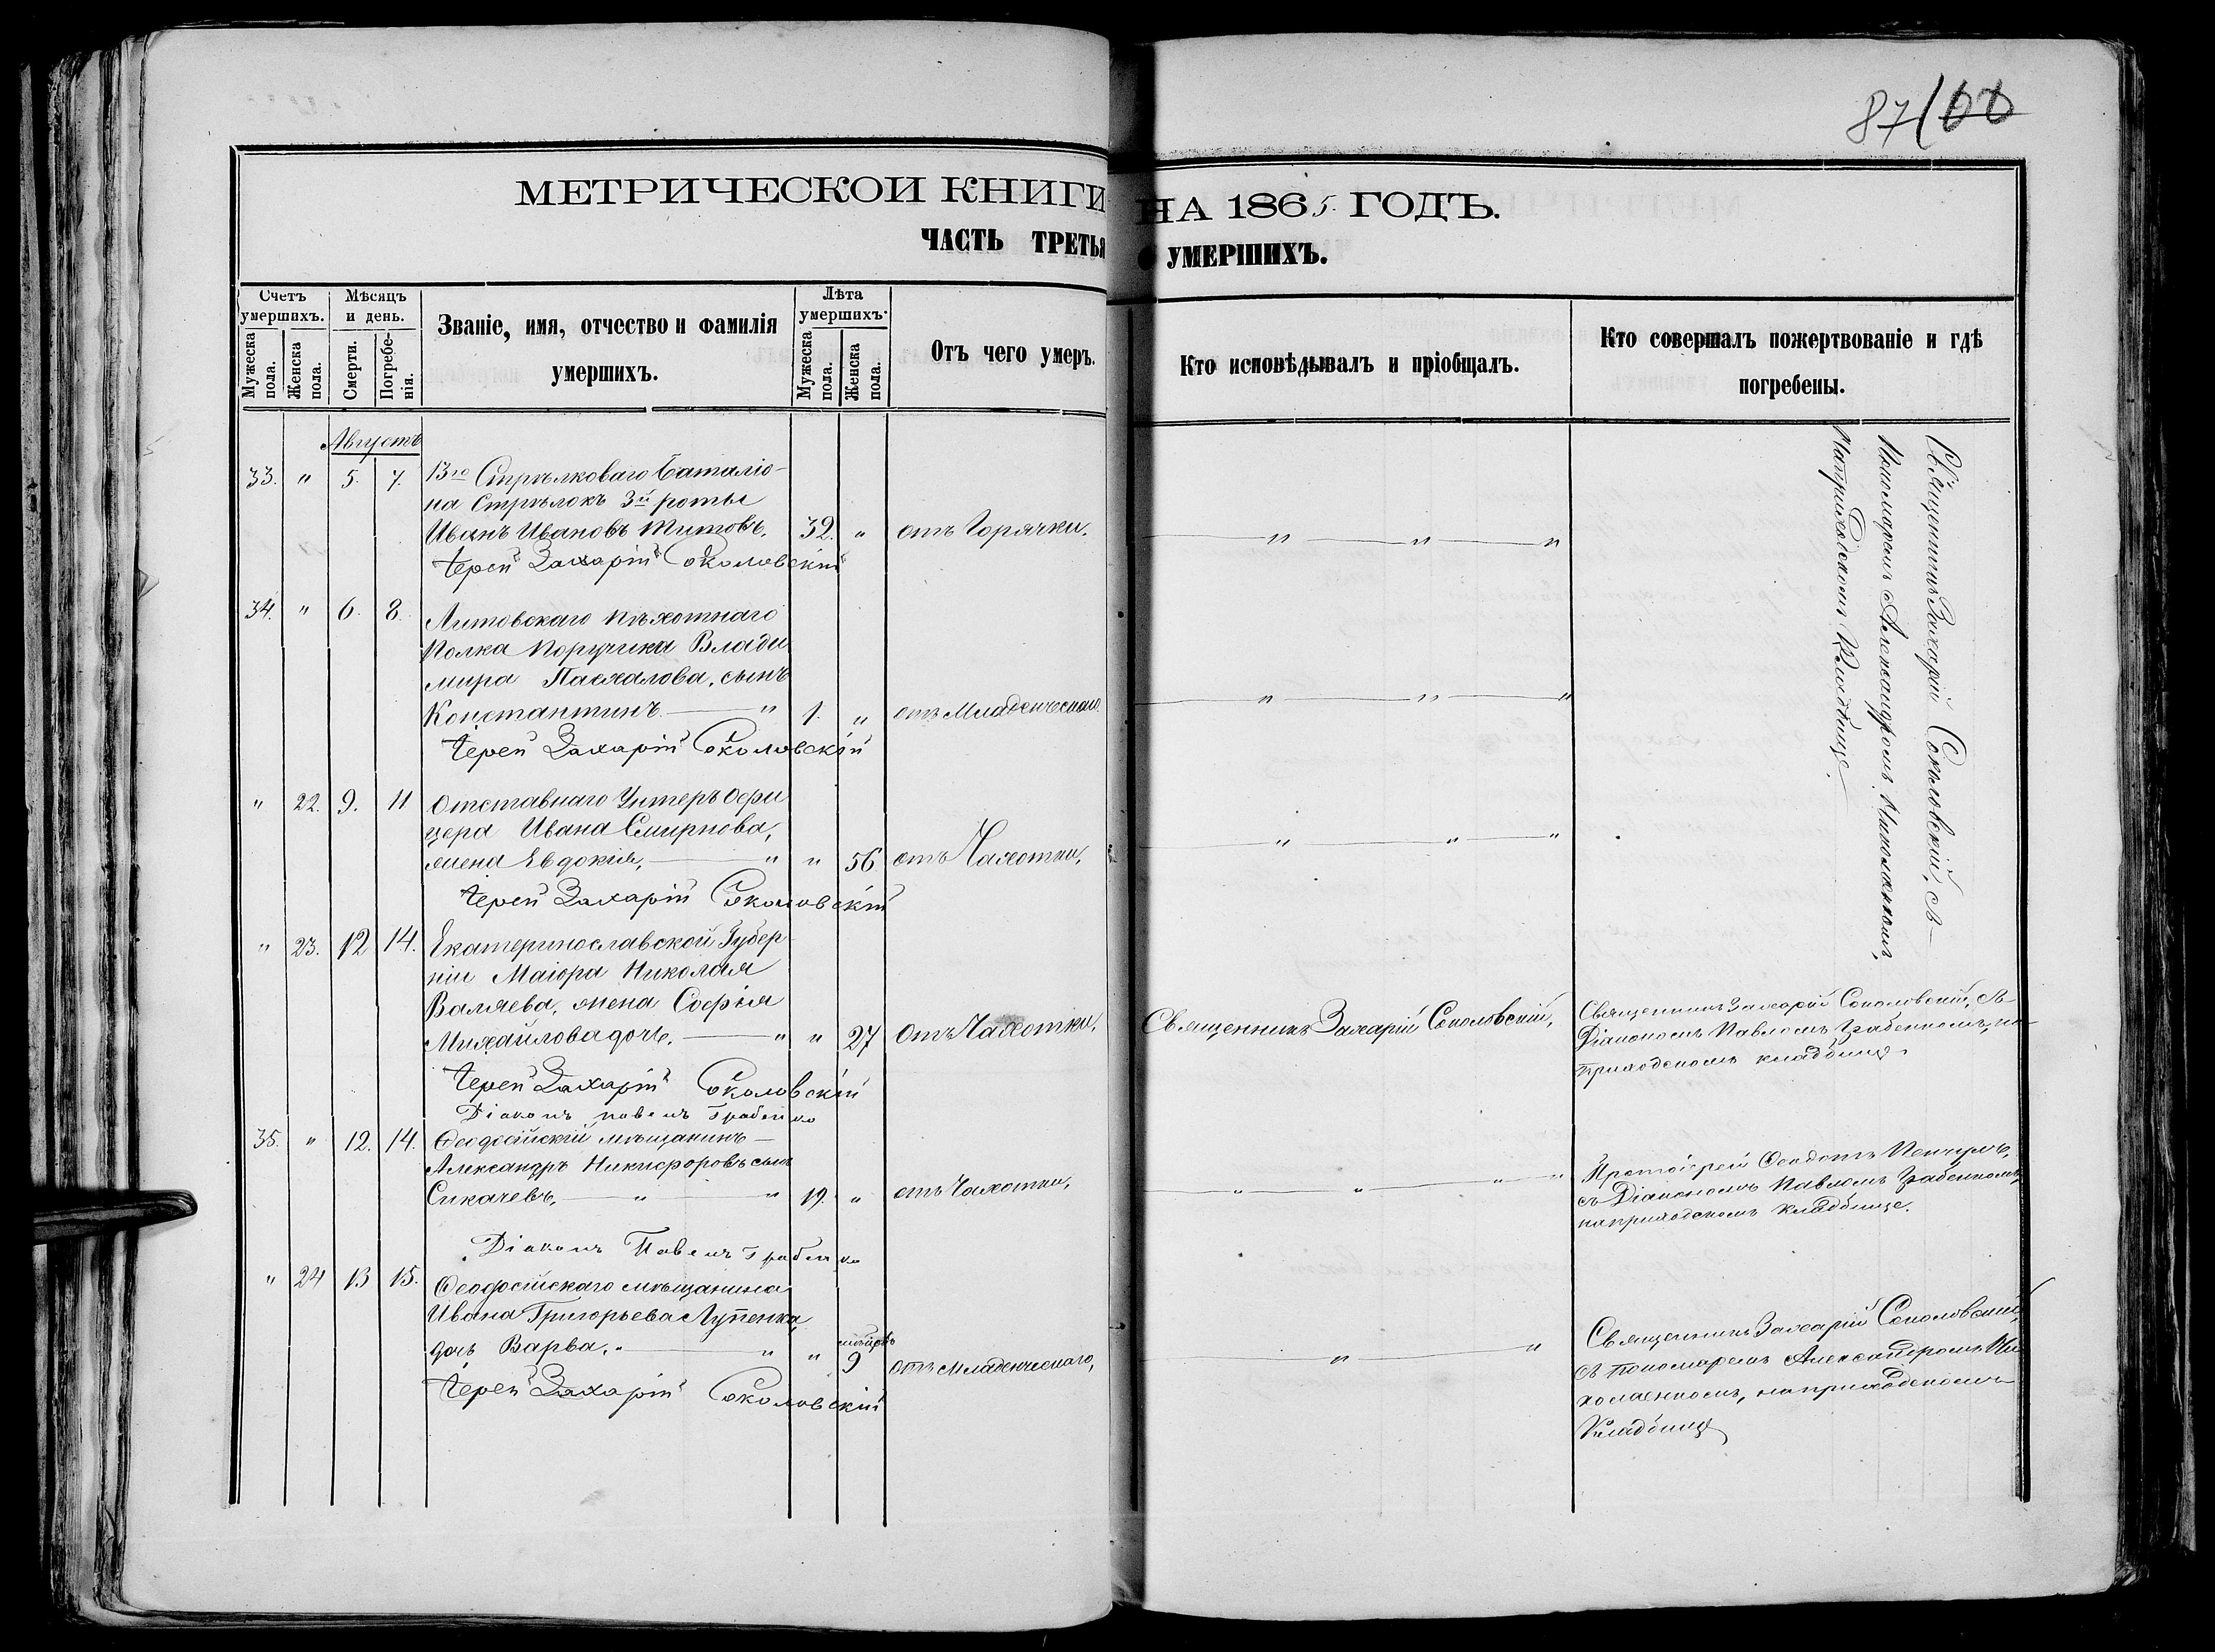 87 100
МЕТРИЧЕСКОЙ КНИГИ НА 1865 ГОДЪ.
ЧАСТЬ ТРЕТЬЯ УМЕРШИХЪ.
Счетъ умершихъ.
Мужеска пола.
Женска пола.
Мѣсяцъ и день.
Смерти.
Погребенія.
Званіе, имя, отчество и фамилія
умершихъ.
Лѣта умершихъ.
Мужеска пола.
Женска пола.
Отъ чего умеръ.
Кто исповѣдывалъ и пріобщалъ.
Кто совершалъ пожертвованіе и гдѣ
погребены.
Августъ
33. " 5. 7. 13го Стрѣлковаго Баталіо-
на Стрѣлокъ 3й роты
Иванъ Ивановъ Титовъ. 32. " отъ Горячки. " " "
Іерей Захарій Соколовскій
34. " 6. 8. Литовскаго пѣхотнаго
полка Поручика Влади
мира Пасхалова, сынъ
Константинъ. " 1. " отъ Младенческаго " " "
Іерей Захарій Соколовскій
" 22. 9. 11 Отставнаго Унтеръ Офи
цера Ивана Смирнова,
жена Евдокія, " " 56 отъ Чахотки, " " "
Іерей Захарій Соколовскій
Священникъ Захарій Соколовскій, съ
Пономаремъ Александромъ Николаенкомъ,
на приходскомъ Кладбище.
" 23. 12 14. Екатеринославской Губер
ніи Маіора Николая
Валяева, жена Софія
Михайлова дочь. " " 27 отъ Чахотки, Священникъ Захарій Соколовскій,
Іерей Захарій Соколовскій
Діаконъ Павелъ Грабенко
Священникъ Захарій Соколовскій, съ
Діакономъ Павломъ Грабенкомъ, на
приходскомъ кладбище
35. " 12. 14. Ѳеодосійскій мѣщанинъ
Александръ Никифоровъ сынъ
Сикачевъ, " " 19. " отъ Чахотки, " " " "
Діаконъ Павелъ Грабенко
Протоіерей Ѳеодотъ
съ Діакономъ Павломъ Грабенкомъ,
на приходскомъ кладбище.
" 24 13 15. Ѳеодосійскаго мѣщанина
Ивана Григорьева Лупенка,
дочь Варва. " " 9 отъ младенческаго, " "
Іерей Захарій Соколовскій
Священникъ Захарій Соколовскій,
съ Пономаремъ Александромъ Ни
колаенкомъ, на приходскомъ
Кладбище